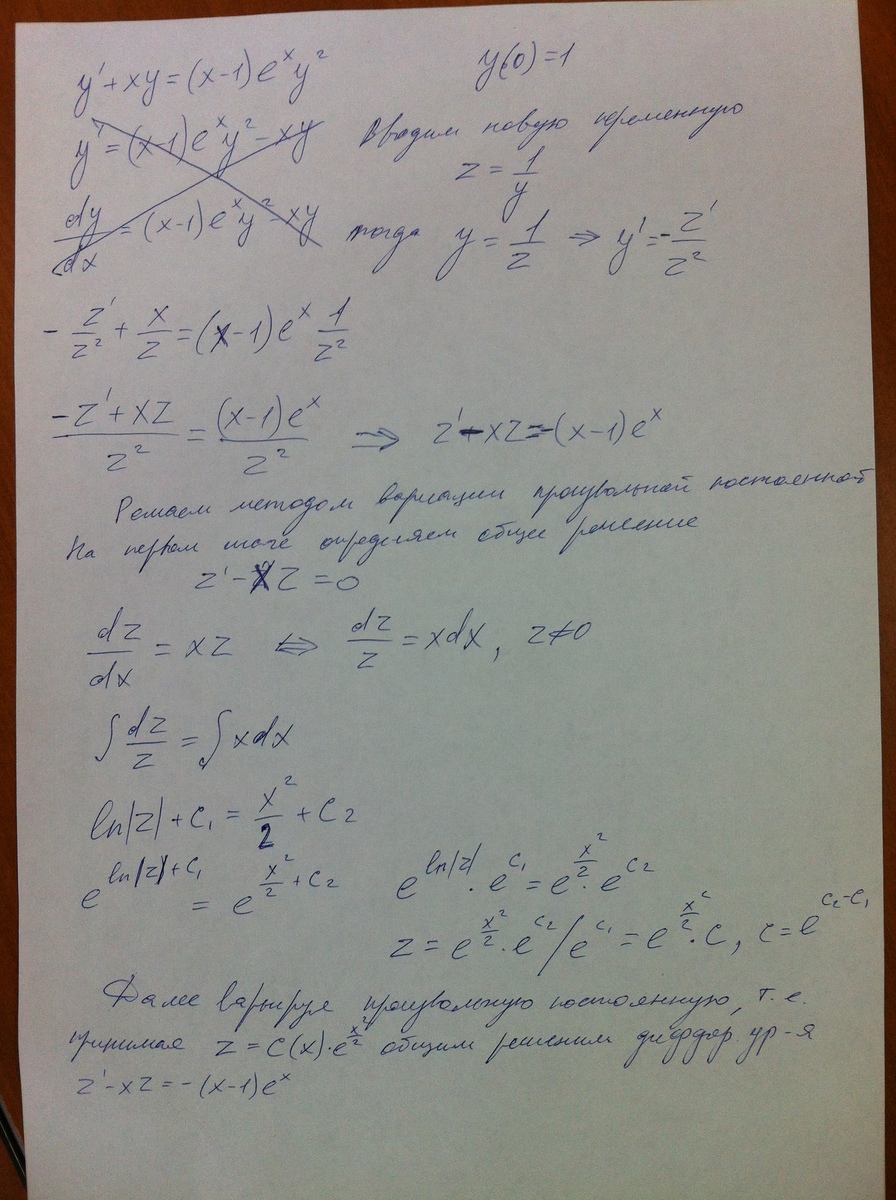 y' + xy = (x-1)e^x y^2 y(0) = 1
y' = (x-1)e^x y^2 - xy Вводим новую переменную
z = 1/y
dy/dx = (x-1)e^x y^2 - xy тогда y = 1/z ⇒ y' = -z'/z^2
- z'/z^2 + x/z = (x-1)e^x 1/z^2
(-z' + xz)/z^2 = (x-1)e^x/z^2 ⇒ z' - xz = -(x-1)e^x
Решаем методом вариации произвольной постоянной
На первом шаге определяем общее решение
z' - xz = 0
dz/dx = xz ⇔ dz/z = xdx, z≠0
∫dz/z = ∫xdx
ln|z| + C₁ = x^2/2 + C₂
e^(ln|z| + C₁) = e^(x^2/2 + C₂) e^(ln|z|) · e^(C₁) = e^(x^2/2) · e^(C₂)
z = e^(x^2/2) · e^(C₂) / e^(C₁) = e^(x^2/2) · C, C = e^(C₂-C₁)
Далее варьируя произвольную постоянную, т.е.
принимая z = C(x) · e^(x^2/2) общим решением диффер. ур-я
z' - xz = -(x-1)e^x